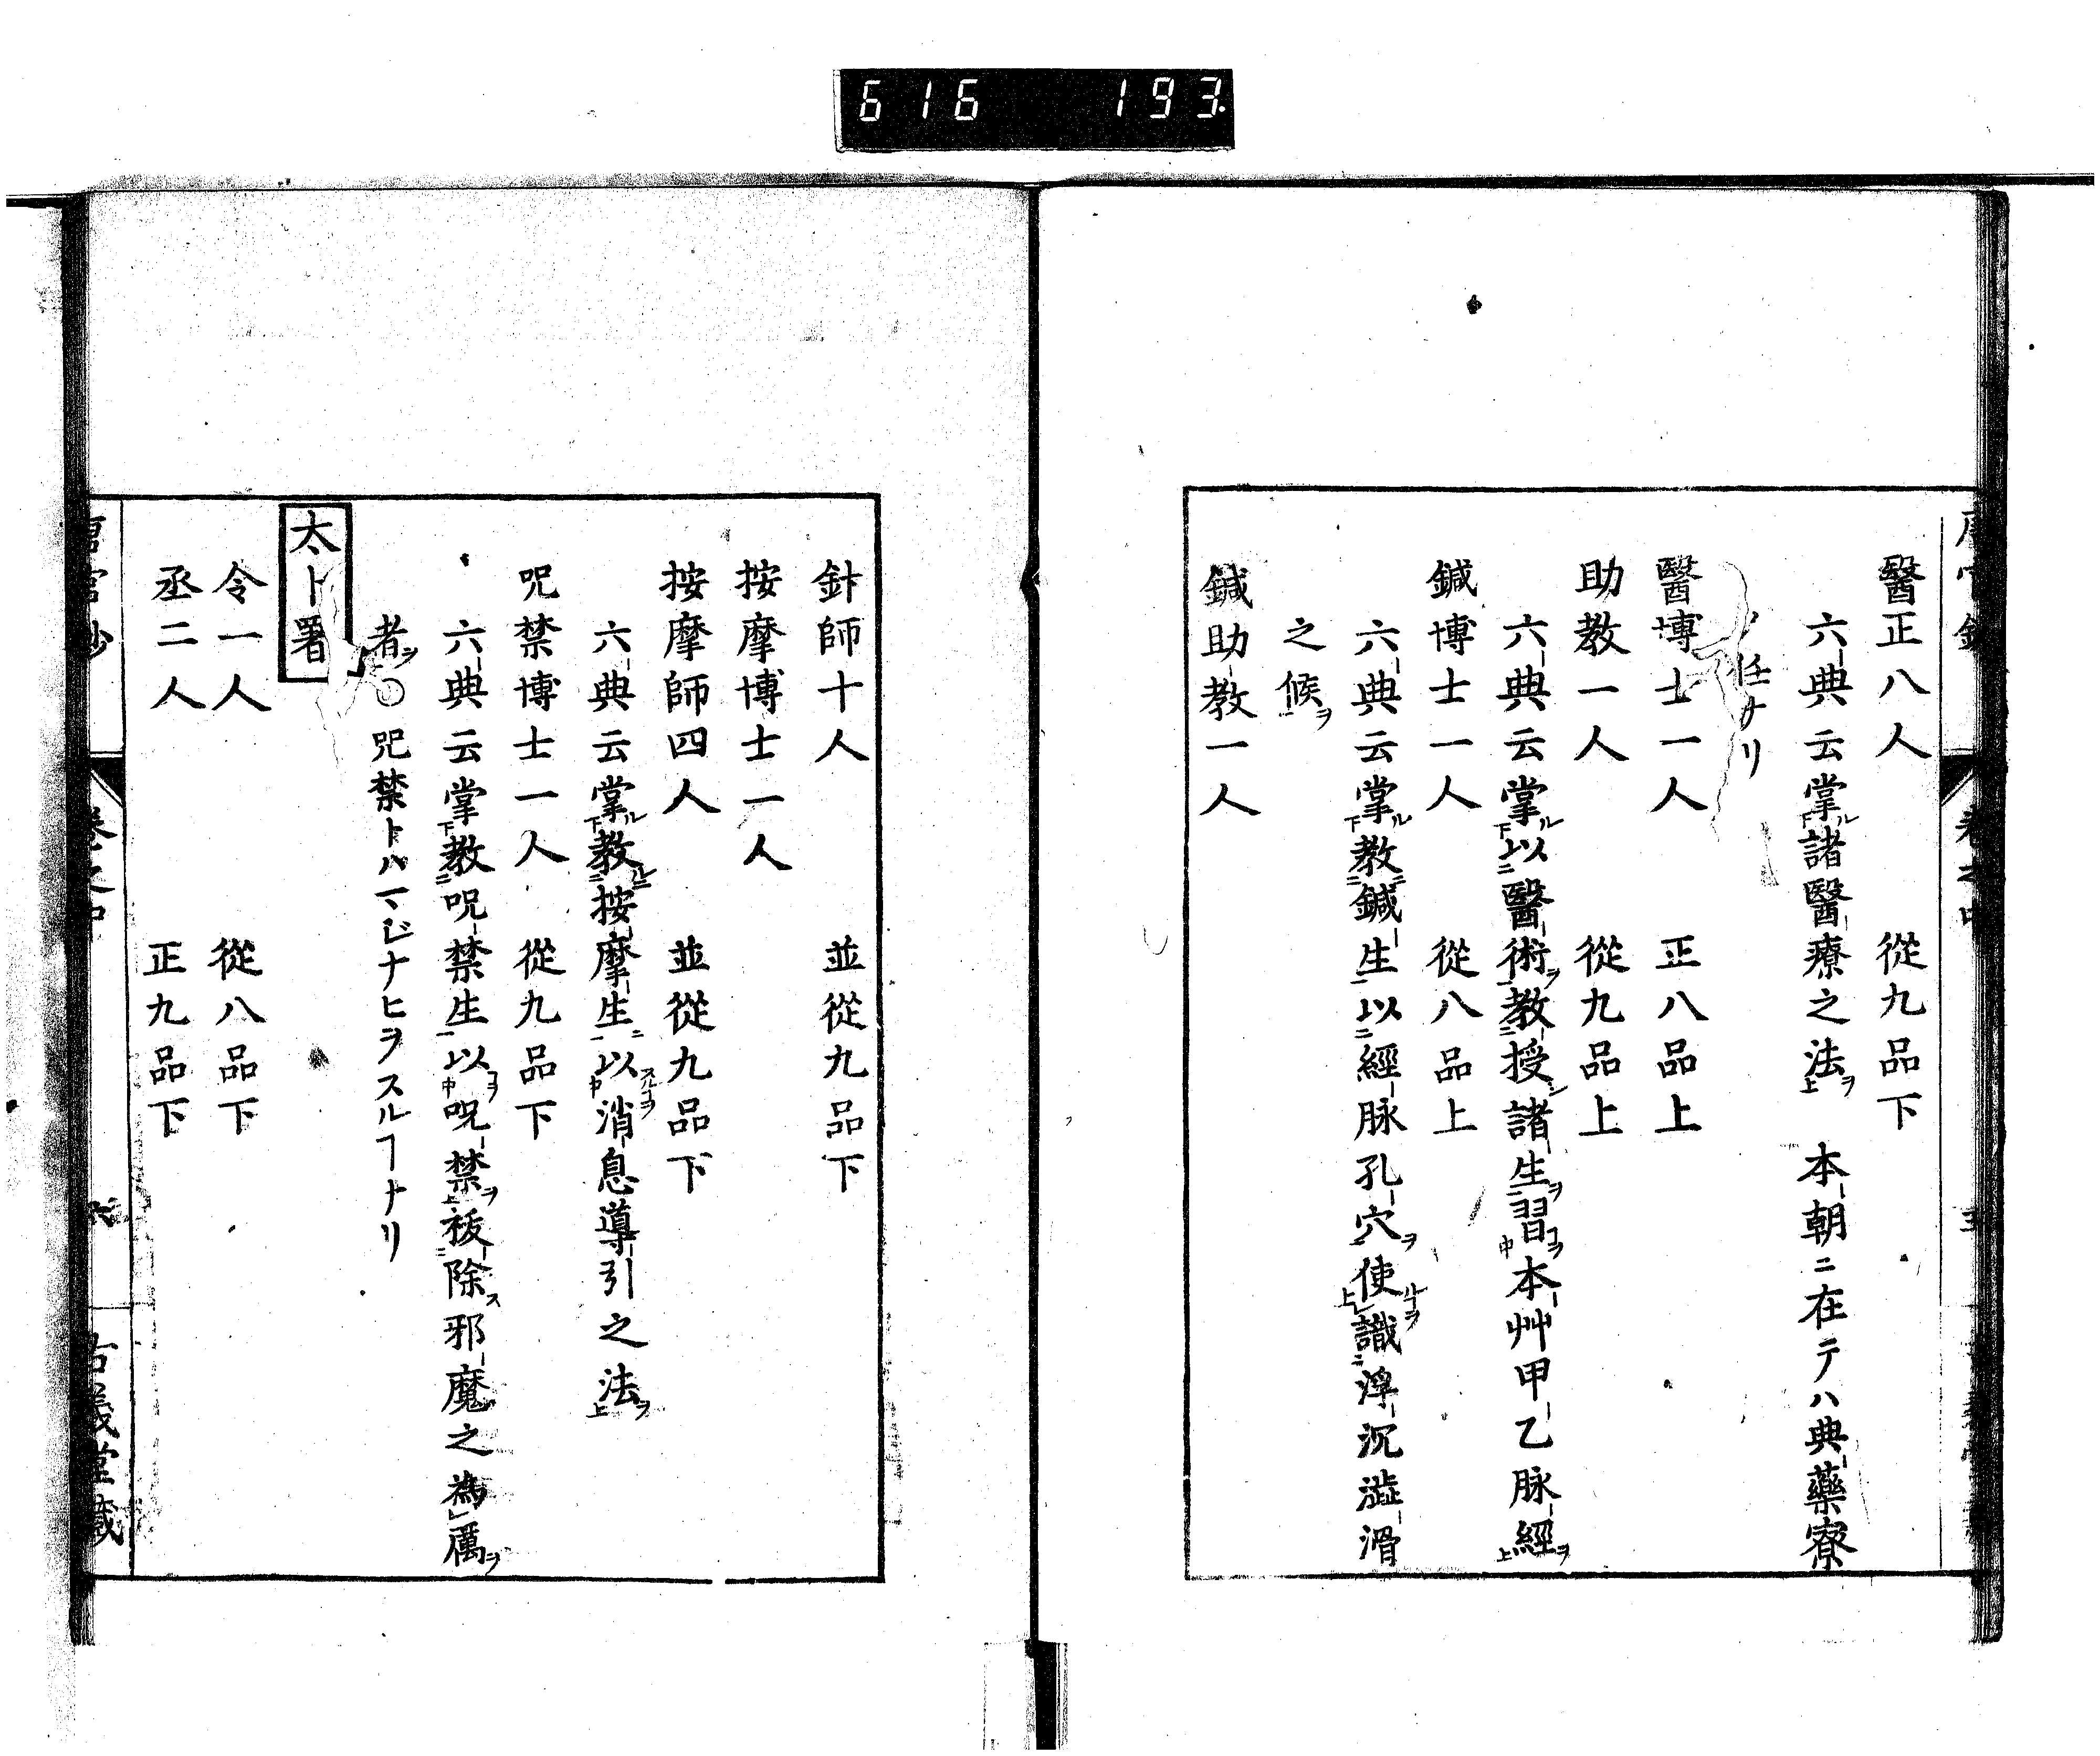 616 193.
醫正八人 從九品下
六典云掌ル諸醫療之法ヲ 本朝ニ在テハ典藥寮
ノ任ナリ
醫博士一人 正八品上
助教一人 從九品上
六典云掌ル以醫術ヲ教授シ諸生ヲ習コヲ本艸甲乙脉經ヲ
鍼博士一人 從八品上
六典云掌ル教ニ鍼生以經脉孔穴ヲ使識浮沉澁滑
之候ヲ
鍼助教一人
針師十人 並從九品下
按摩博士一人
按摩師四人 並從九品下
六典云掌ル教ルニ按摩生ニ以消息導引之法ヲ
呪禁博士一人 從九品下
六典云掌教呪禁生以呪禁ヲ祓除ス邪魔之為厲ヲ
者ヲ〇呪禁トハマジナヒヲスルヿナリ
太卜署
令一人 從八品下
丞二人 正九品下
卷之中 六 古義堂藏